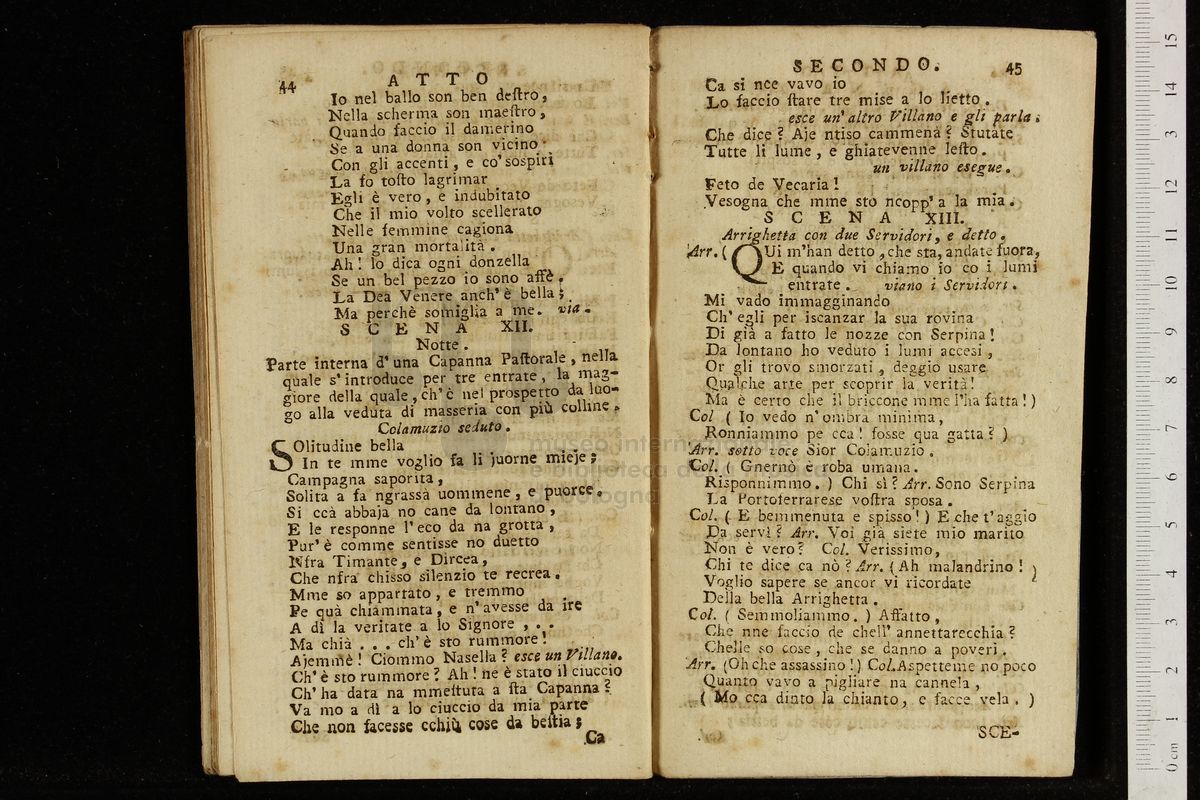 44 ATTO
Io nel ballo son ben deſtro,
Nella scherma son maeſtro,
Quando faccio il damerino
Se a una donna son vicino
Con gli accenti, e co' sospiri
La fo toſto lagrimar
Egli è vero, e indubitato
Che il mio volto scellerato
Nelle femmine cagiona
Una gran mortalità.
Ah! lo dica ogni donzella
Se un bel pezzo io sono affè.
La Dea Venere anch' è bella;
Ma perchè somiglia a me. via.
SCENA XII.
Notte.
Parte interna d' una Capanna Paſtorale, nella
quale s' introduce per tre entrate, la mag-
giore della quale, ch' è nel prospetto da luo-
go alla veduta di masseria con più colline.
Colamuzio seduto.
SOlitudine bella
In te mme voglio fa li juorne mieje;
Campagna saporita,
Solita a fa ngrassà uommene, e puorce.
Si ccà abbaja no cane da lontano,
E le responne l' eco da na grotta,
Pur' è comme sentisse no duetto
Nfra Timante, e Dircea,
Che nfra chisso silenzio te recrea.
Mme so appartato, e tremmo
Pe quà chiammata, e n' avesse da ire
A dì la veritate a lo Signore ...
Ma chià ... ch' è sto rummore!
Ajemmè! Ciommo Nasella? esce un Villano.
Ch' è sto rummore? Ah! ne è stato il ciuccio
Ch' ha data na mmeſtuta a ſta Capanna?
Va mo a dì a lo ciuccio da mia parte
Che non facesse cchiù cose da beſtia;
Ca
SECONDO. 45
Ca si nce vavo io
Lo faccio ſtare tre mise a lo lietto.
esce un' altro Villano e gli parla.
Che dice? Aje ntiso cammenà? Stutate
Tutte li lume, e ghiatevenne leſto.
un villano esegue.
Feto de Vecaria!
Vesogna che mme sto ncopp' a la mia.
SCENA XIII.
Arrighetta con due Servidori, e detto.
Arr. (QUi m'han detto, che sta, andate fuora,
E quando vi chiamo io co i lumi
entrate. viano i Servidori.
Mi vado immagginando
Ch' egli per iscanzar la sua rovina
Di già a fatto le nozze con Serpina!
Da lontano ho veduto i lumi accesi,
Or gli trovo smorzati, deggio usare
Qualche arte per scoprir la verità!
Ma è certo che il briccone mme l'ha fatta!)
Col ( Io vedo n' ombra minima,
Ronniammo pe cca! fosse qua gatta?)
Arr. sotto voce Sior Colamuzio.
Col. ( Gnernò è roba umana.
Risponnimmo.) Chi sì? Arr. Sono Serpina
La Portoferrarese voſtra sposa.
Col. ( E bemmenuta e spisso!) E che t' aggio
Da servì? Arr. Voi già siete mio marito
Non è vero? Col. Verissimo,
Chi te dice ca nò? Arr. (Ah malandrino!)
Voglio sapere se ancor vi ricordate
Della bella Arrighetta.
Col. ( Semmoliammo.) Affatto,
Che nne faccio de chell' annettarecchia?
Chelle so cose, che se danno a poveri.
Arr. (Oh che assassino!) Col. Aspetteme no poco
Quanto vavo a pigliare na cannela,
( Mo cca dinto la chianto, e facce vela.)
SCE-
museo internazionale
e biblioteca della musica
di bologna